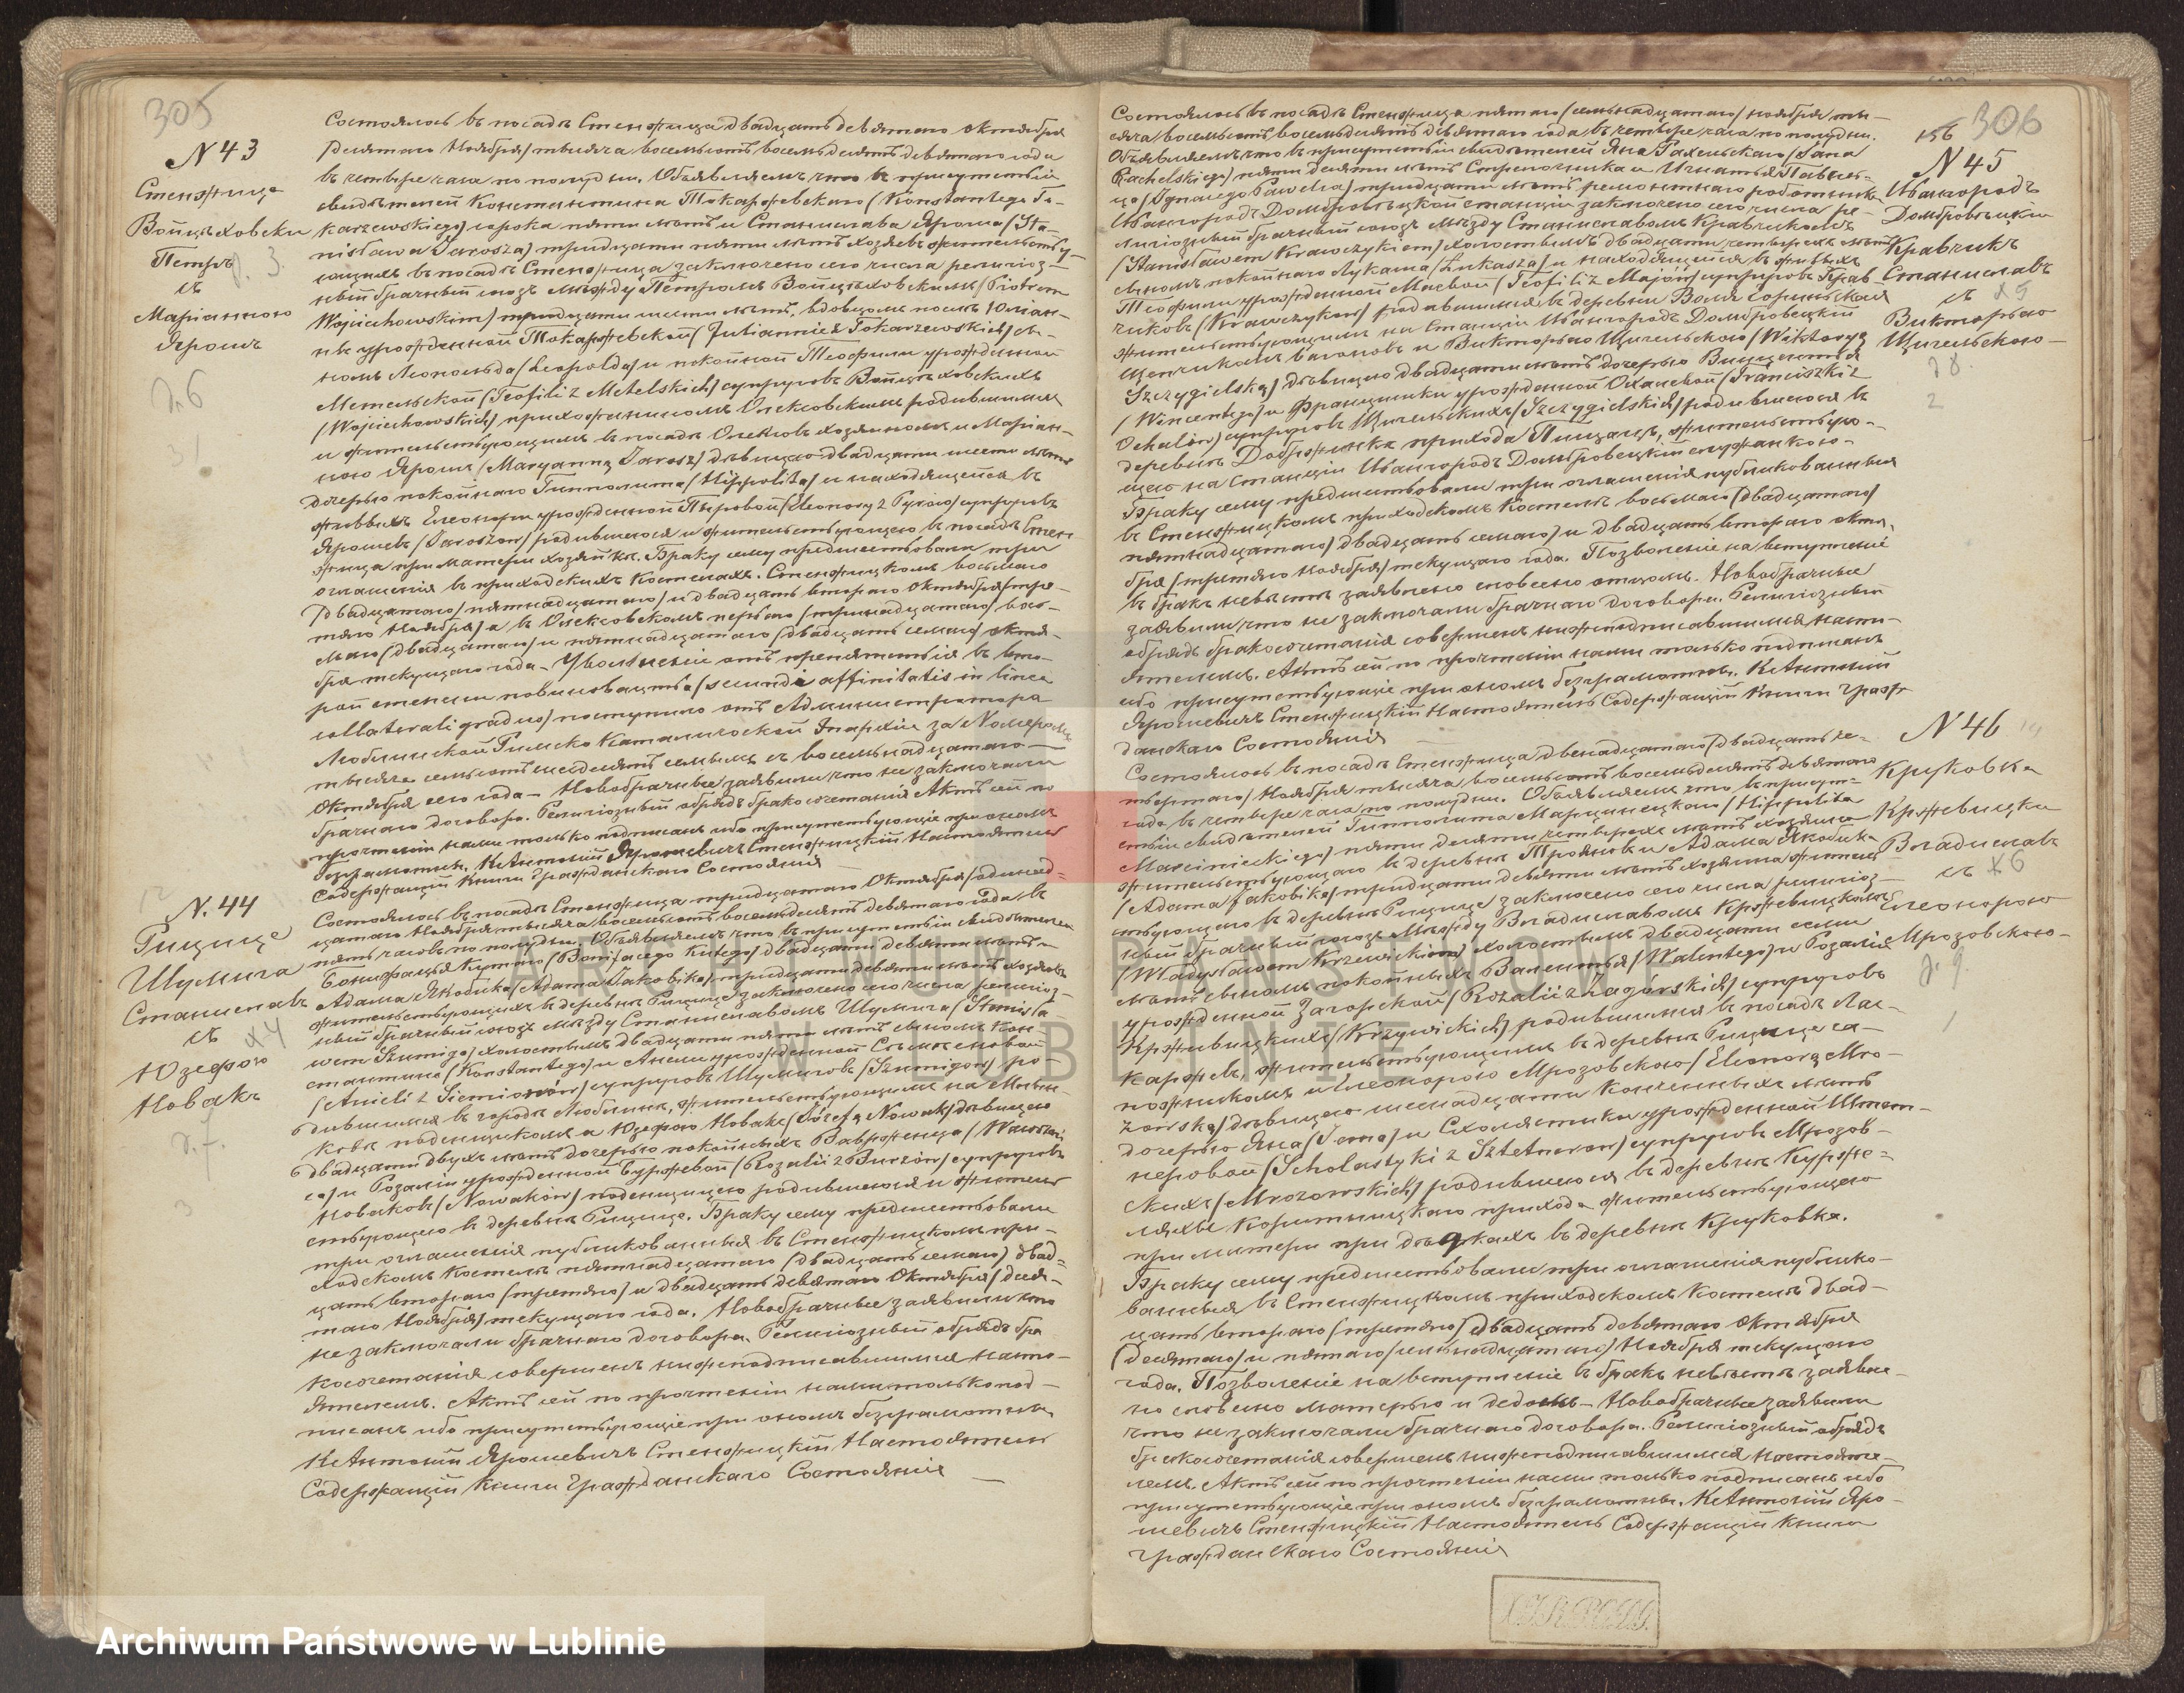 305
N 43
Стенжица
Войцѣховски
Петръ
съ
Маріанною
Ярошъ
Состоялось въ посадѣ Стенжица двадцать девятаго октября
/десятаго Ноября/ тысяча восемьсотъ восемьдесятъ девятаго года
въ четыре часа по полудни. Объявляемъ что въ присутствіи
свидѣтелей Константина Токаржевскаго /Konstantego To-
karzewskiego/ сорока пяти лѣтъ и Станислава Яроша /Sta-
nisława Jarosza/ тридцати пяти лѣтъ хозяевъ жительству-
ющихъ въ посадѣ Стенжица заключено сего числа религіоз-
ный брачный союзъ между Петромъ Войцѣховскимъ /Piotrem
Wojciechowskim/ тридцати шести лѣтъ, вдовцомъ послѣ Юліан-
нѣ урожденной Токаржевской /Juliannie z Tokarzewskich/ сы-
номъ Леопольда /Leopolda/ и покойной Теофили урожденной
Метельской /Teofili z Metelskich/ супруговъ Войцѣховскихъ
/Wojciechowskich/ прихожаниномъ Олексовскимъ родившимся
и жительствующимъ въ посадѣ Олексовъ хозяиномъ и Маріан-
ною Ярошъ /Maryanną Jarosz/ дѣвицею двадцати шести лѣтъ
дочерью покойнаго Гипполита /Hippolita/ и находящейся въ
живыхъ Елеоноры урожденной Пыровой /Eleonory z Pyrow/ супруговъ
Ярошовъ /Jaroszow/ родившеюся и жительствующею въ посадѣ Стен-
жица при матери хозяйкѣ. Браку сему предшествовали три
оглашенія въ приходскихъ костелахъ. Стенжицкомъ восьмаго
/двадцатаго/ пятнадцатаго/ и двадцать втораго октября /тре-
тяго Ноября/ а въ Олексовскомъ перваго /тринадцатаго/ вось-
маго /двадцатаго/ и пятнадцатаго /двадцать седьмаго/ октя-
бря текущаго года – Увольненіе отъ препятствія въ вто-
рой степени /secundi affinitatis in linea
collaterali gradus/ поступило отъ Администратора
Люблинской Римско Католической Епархіи за Номеромъ
тысяча семьсотъ шесдесятъ семымъ съ восемьнадцатаго
Октября сего года – Новобрачные заявили что не заключали
брачнаго договора. Религіозный обрядъ бракосочетанія Актъ сей по
прочтеніи нами только подписанъ ибо присутствующіе при ономъ
безграмотны. К. Антоній Ярошевичъ Стенжицкій Настоятель
Содержащій Книги Гражданскаго Состоянія
N. 44
Рицице
Шумига
Станиславъ
съ
Юзефою
Новакъ
Состоялось въ посадѣ Стенжица тридцатаго Октября /одинад-
цатаго Ноября/ тысяча восемьсотъ восемьдесятъ девятаго года въ
пять часовъ по полудни. Объявляемъ что въ присутствіи свидѣтелей
Бонифація Кутего /Bonifacego Kutego/ двадцати девяти лѣтъ и
Адама Якобика /Adama Jakobika/ тридцати девяти лѣтъ хозяевъ
жительствующихъ въ деревнѣ Рицице заключено сего числа религіоз-
ный брачный союзъ между Станиславомъ Шумига /Stanisła-
wem Szumiga/ холостымъ двадцати пяти лѣтъ сыномъ Кон-
стантина /Konstantego/ и Анели урожденной Семіоновой
/Anieli z Siemionów/ супруговъ Шумиговъ /Szumigow/ ро-
дившимся въ городѣ Люблинѣ, жительствующимъ на
поденщикомъ а Юзефою Новакъ /Józefą Nowak/ дѣвицею
двадцати двухъ лѣтъ дочерью покойныхъ Вавржинца /Wawrzeń-
ca/ и Розаліи урожденной Буржовой /Rozalii z Burzów/ супруговъ
Новаковъ /Nowaków/ поденщицею родившеюся и житель-
ствующею въ деревнѣ Рицице. Браку сему предшествовали
три оглашенія публикованныя въ Стенжицкомъ при-
ходскомъ Костелѣ пятнадцатаго /двадцать семаго/ двад-
цать втораго /третяго/ и двадцать девятаго Октября /деся-
таго Ноября/ текущаго года. Новобрачные заявили что
не заключали брачнаго договора. Религіозный обрядъ бра-
косочетанія совершенъ нижеподписавшимся Насто-
ятелемъ. Актъ сей по прочтеніи нами только под-
писанъ ибо присутствующіе при ономъ безграмотны
К. Антоній Ярошевичъ Стенжицкій Настоятель
Содержащій Книги Гражданскаго Состоянія
156 306
N 45
Ивангородъ
Домбровицкій
Кравчикъ
Станиславъ
съ
Викторіею
Щигельскою
Состоялось въ посадѣ Стенжица пятаго /семьнадцатаго/ ноября ты-
сяча восемьсотъ восемьдесятъ девятаго года въ четыре часа по полудни.
Объявляемъ что въ присутствіи свидѣтелей Яна Рахельскаго /Jana
Rachelskiego/ пяти десяти лѣтъ Стрелочника и Игнатія Павель-
ца /Ignacego Pawelca/ тридцати лѣтъ ремонтнаго работника
Ивангородъ Домбровицкой станціи заключено сего числа ре-
лигіозный брачный союзъ между Станиславомъ Кравчикомъ
/Stanisławem Krawczykiem/ холостымъ двадцати четырехъ лѣтъ
сыномъ покойнаго Лукаша /Łukasza/ и находящейся въ живыхъ
Теофили урожденной Маевой /Teofili z Majów/ супруговъ Крав-
чиковъ /Krawczyków/ родившимся въ деревнѣ Воля
жительствующимъ на Станціи Ивангородъ Домбровицкій
вагоновъ и Викторіею Щигельскою /Wiktoryą
Szczygielską/ дѣвицею двадцати лѣтъ дочерью Винцентія
/Wincentego/ и Францишки урожденной Охалевой /Franciszki z
Ochalów/ супруговъ Щигельскихъ /Szczygielskich/ родившеюся въ
деревнѣ прихода жительствую-
щею на Станціи Ивангородъ Домбровицкій служанкою
Браку сему предшествовали три оглашенія публикованныя
въ Стенжицкомъ приходскомъ Костелѣ восьмаго /двадцатаго/
пятнадцатаго /двадцать семаго/ и двадцать втораго октя-
бря /третяго Ноября/ текущаго года. Позволеніе на вступленіе
въ бракъ невѣстѣ заявлено словесно отцомъ. Новобрачные
заявили что не заключали брачнаго договора. Религіозный
обрядъ бракосочетанія совершенъ нижеподписавшимся Насто-
ятелемъ. Актъ сей по прочтеніи нами только подписанъ
ибо присутствующіе при ономъ безграмотны. К. Антоній
Ярошевичъ Стенжицкій Настоятель Содержащій Книги Граж-
данскаго Состоянія
N 46
Круковка
Крживицки
Владиславъ
съ
Елеонорою
Мрозовскою
Состоялось въ посадѣ Стенжица двенадцатаго /двадцать че-
твертаго/ Ноября тысяча восемьсотъ восемьдесятъ девятаго
года въ четыре часа по полудни. Объявляемъ что въ присут-
ствіи свидѣтелей Гипполита Марцинецкаго /Hippolita
Marcinieckiego/ пяти десяти четырехъ лѣтъ хозяина
жительствующаго въ деревнѣ Трояновъ и Адама Якобика
/Adama Jakobika/ тридцати девяти лѣтъ хозяина житель-
ствующаго въ деревнѣ Рицице заключено сего числа религіоз-
ный брачный союзъ между Владиславомъ Крживицкимъ
/Władysławem Krzewickim/ холостымъ двадцати семи
лѣтъ сыномъ покойныхъ Валентія /Walentego/ и Розаліи
урожденной Загорской /Rozalii z Zagórskich/ супруговъ
Крживицкихъ /Krzywickich/ родившимся въ посадѣ Лас-
каржевъ, жительствующимъ въ деревнѣ Рицице са-
пожникомъ и Елеонорою Мрозовскою /Eleonorą Mro-
zowską/ дѣвицею шеснадцати конченныхъ лѣтъ
дочерью Яна /Jana/ и Схолястики урожденной Штет-
неровой /Scholastyki z Sztetnerow/ супруговъ Мрозов-
скихъ /Mrozowskich/ родившеюся въ деревнѣ Курже-
лаской прихода жительствующею
при матери при въ деревнѣ Круковка.
Браку сему предшествовали три оглашенія публико-
ванныя въ Стенжицкомъ приходскомъ Костелѣ двад-
цать втораго /третяго/ двадцать девятаго октября
/десятаго/ и пятаго /семьнадцатаго/ Ноября текущаго
года. Позволеніе на вступленіе въ бракъ невѣстѣ заявле-
но словесно матерью и – Новобрачные заявили
что не заключали брачнаго договора. Религіозный обрядъ
бракосочетанія совершенъ нижеподписавшимся Настояте-
лемъ. Актъ сей по прочтеніи нами только подписанъ ибо
присутствующіе при ономъ безграмотны. К. Антоній Яро-
шевичъ Стенжицкій Настоятель Содержащій Книги
Гражданскаго Состоянія
ARCHIWUM PAŃSTWOWE
W LUBLINIE
Archiwum Państwowe w Lublinie